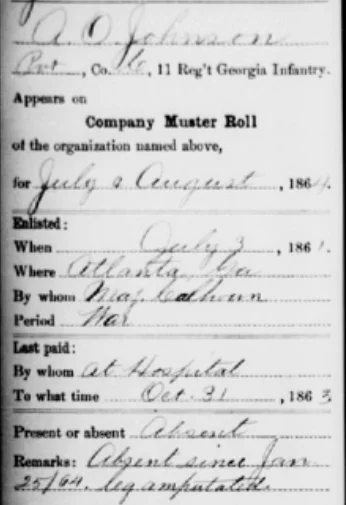 A. O. Johnson
Pvt, Co. , 11 Reg't Georgia Infantry.
Appears on
Company Muster Roll
of the organization named above,
for July & August, 1864.
Enlisted:
When July 3, 1861.
Where Atlanta, Ga
By whom Maj. Calhoun
Period War
Last paid:
By whom at Hospital
To what time Oct. 31, 1863
Present or absent Absent
Remarks: Absent since Jan
25/64. leg amputated.